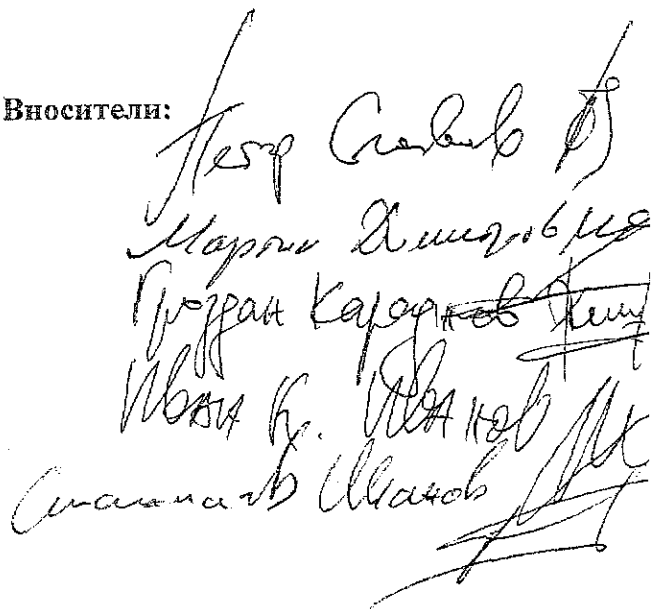 Вносители:
Петър Славов
Мартин Димитров
Гроздан Караджов
Иван К. Иванов
Станислав Иванов